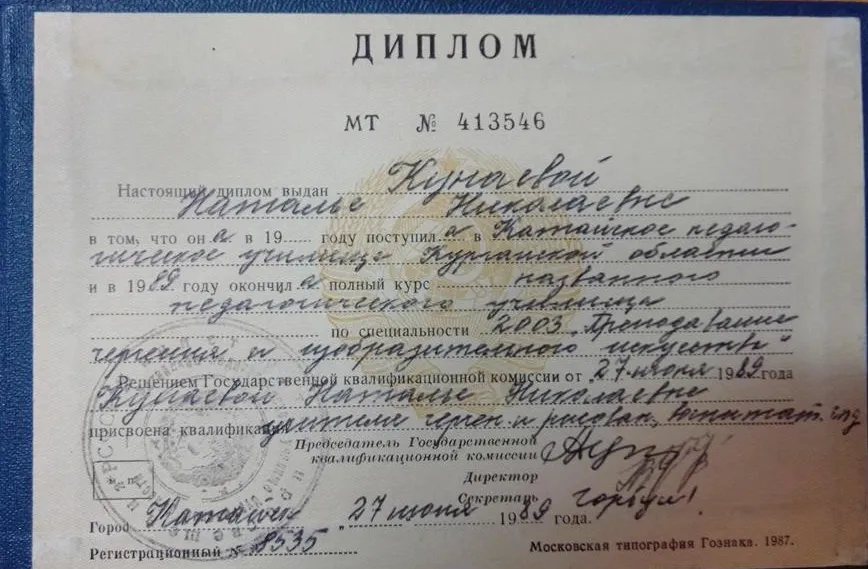 ДИПЛОМ
МТ № 413546
Настоящий диплом выдан Кунаевой
Наталье Николаевне
в том, что она в 19 году поступила в Катайское педаго-
гическое училище Курганской области
и в 1989 году окончила полный курс названного
педагогического училища
по специальности 2003 „Преподавание
черчения и изобразительного искусства“
Решением Государственной квалификационной комиссии от „27 июня 1989 года
Кунаевой Наталье Николаевне
присвоена квалификация учителя черчен. и рисован., воспитат.
Председатель Государственной
квалификационной комиссии
Директор
Секретарь
Город Катайск „27 июня 1989 года.
Регистрационный № 8535
Московская типография Гознака. 1987.